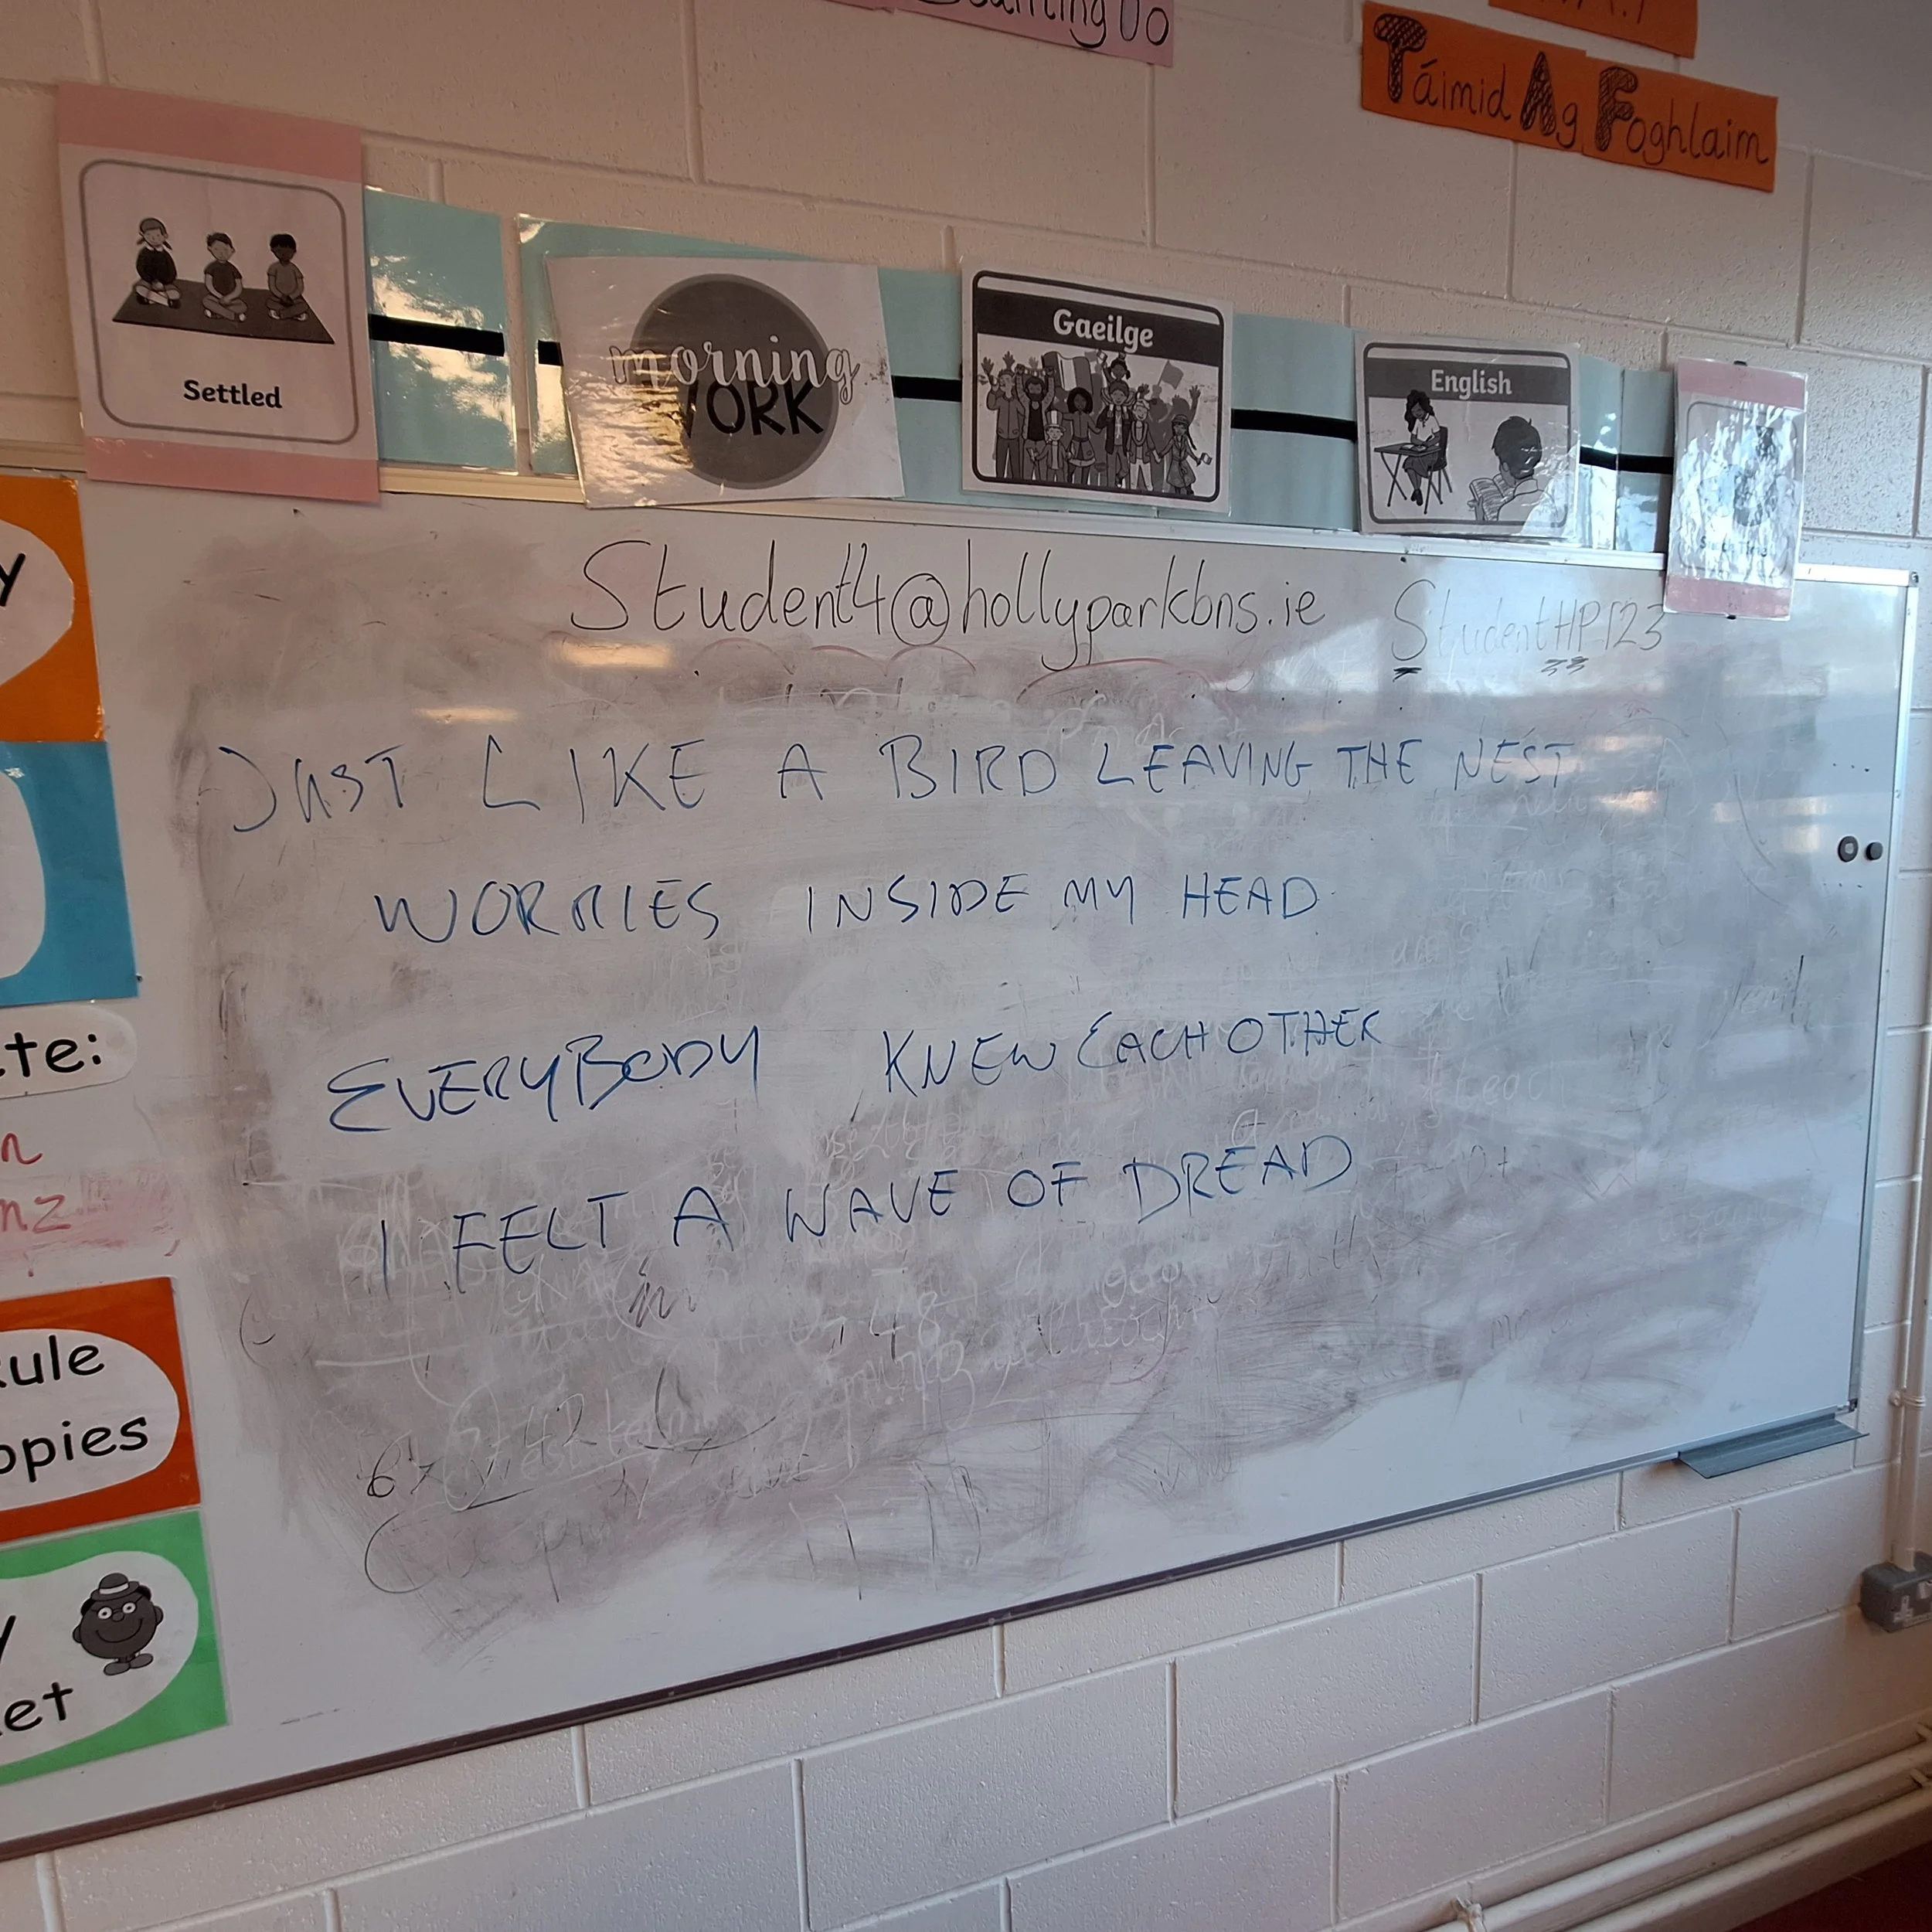 Starting Up
Táimid Ag Foghlaim
Settled
morning
WORK
Gaeilge
English
Student4@hollyparkbns.ie StudentHP123
JUST LIKE A BIRD LEAVING THE NEST
WORRIES INSIDE MY HEAD
EVERYBODY KNEW EACH OTHER
I FELT A WAVE OF DREAD